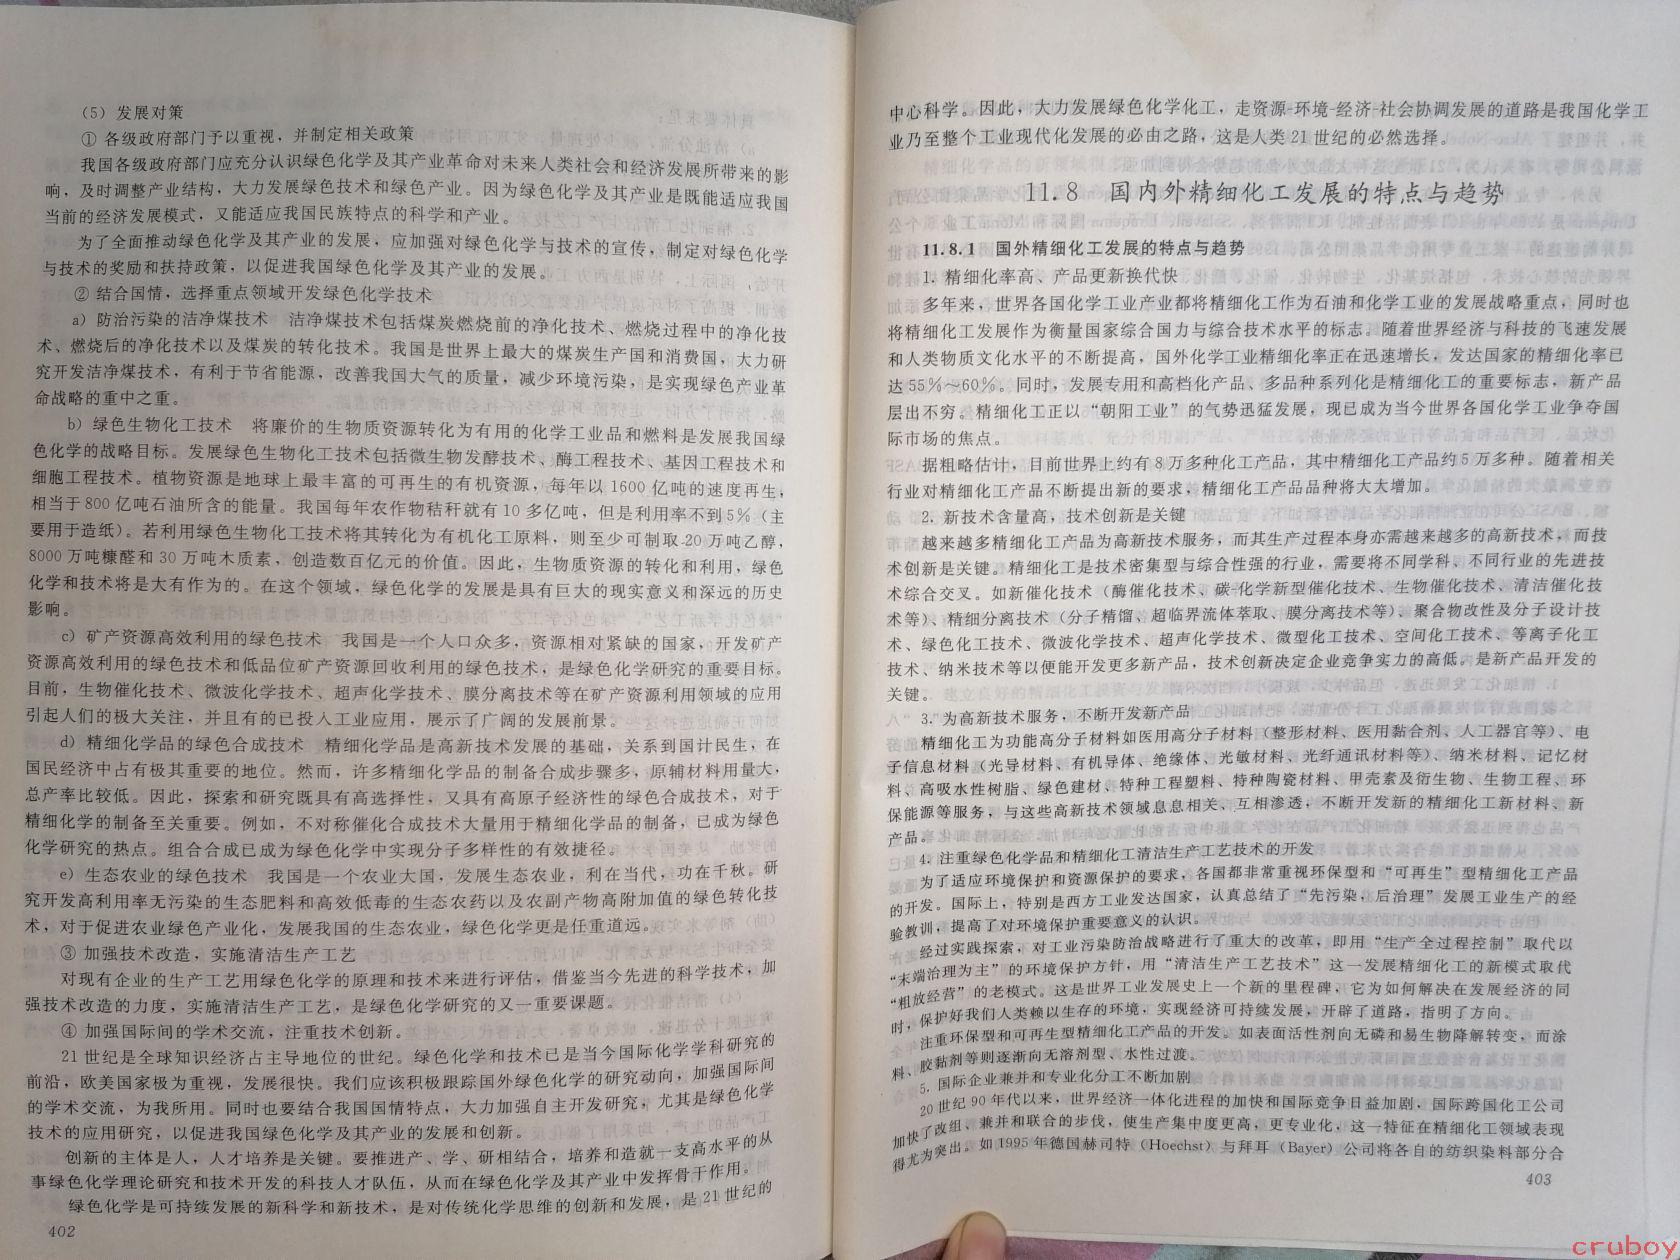 (5) 发展对策
① 各级政府部门予以重视，并制定相关政策
我国各级政府部门应充分认识绿色化学及其产业革命对未来人类社会和经济发展所带来的影
响，及时调整产业结构，大力发展绿色技术和绿色产业。因为绿色化学及其产业是既能适应我国
当前的经济发展模式，又能适应我国民族特点的科学和产业。
为了全面推动绿色化学及其产业的发展，应加强对绿色化学与技术的宣传，制定对绿色化学
与技术的奖励和扶持政策，以促进我国绿色化学及其产业的发展。
② 结合国情，选择重点领域开发绿色化学技术
a) 防治污染的洁净煤技术 洁净煤技术包括煤炭燃烧前的净化技术、燃烧过程中的净化技
术、燃烧后的净化技术以及煤炭的转化技术。我国是世界上最大的煤炭生产国和消费国，大力研
究开发洁净煤技术，有利于节省能源，改善我国大气的质量，减少环境污染，是实现绿色产业革
命战略的重中之重。
b) 绿色生物化工技术 将廉价的生物质资源转化为有用的化学工业品和燃料是发展我国绿
色化学的战略目标。发展绿色生物化工技术包括微生物发酵技术、酶工程技术、基因工程技术和
细胞工程技术。植物资源是地球上最丰富的可再生的有机资源，每年以1600亿吨的速度再生，
相当于800亿吨石油所含的能量。我国每年农作物秸秆就有10多亿吨，但是利用率不到5%（主
要用于造纸）。若利用绿色生物化工技术将其转化为有机化工原料，则至少可制取20万吨乙醇，
8000万吨糠醛和30万吨木质素，创造数百亿元的价值。因此，生物质资源的转化和利用，绿色
化学和技术将是大有作为的。在这个领域，绿色化学的发展是具有巨大的现实意义和深远的历史
影响。
c) 矿产资源高效利用的绿色技术 我国是一个人口众多，资源相对紧缺的国家，开发矿产
资源高效利用的绿色技术和低品位矿产资源回收利用的绿色技术，是绿色化学研究的重要目标。
目前，生物催化技术、微波化学技术、超声化学技术、膜分离技术等在矿产资源利用领域的应用
引起人们的极大关注，并且有的已投入工业应用，展示了广阔的发展前景。
d) 精细化学品的绿色合成技术 精细化学品是高新技术发展的基础，关系到国计民生，在
国民经济中占有极其重要的地位。然而，许多精细化学品的制备合成步骤多，原辅材料用量大，
总产率比较低。因此，探索和研究既具有高选择性，又具有高原子经济性的绿色合成技术，对于
精细化学的制备至关重要。例如，不对称催化合成技术大量用于精细化学品的制备，已成为绿色
化学研究的热点。组合合成已成为绿色化学中实现分子多样性的有效捷径。
e) 生态农业的绿色技术 我国是一个农业大国，发展生态农业，利在当代，功在千秋。研
究开发高利用率无污染的生态肥料和高效低毒的生态农药以及农副产物高附加值的绿色转化技
术，对于促进农业绿色产业化，发展我国的生态农业，绿色化学更是任重道远。
③ 加强技术改造，实施清洁生产工艺
对现有企业的生产工艺用绿色化学的原理和技术来进行评估，借鉴当今先进的科学技术，加
强技术改造的力度，实施清洁生产工艺，是绿色化学研究的又一重要课题。
④ 加强国际间的学术交流，注重技术创新。
21世纪是全球知识经济占主导地位的世纪。绿色化学和技术已是当今国际化学学科研究的
前沿，欧美国家极为重视，发展很快。我们应该积极跟踪国外绿色化学的研究动向，加强国际间
的学术交流，为我所用。同时也要结合我国国情特点，大力加强自主开发研究，尤其是绿色化学
技术的应用研究，以促进我国绿色化学及其产业的发展和创新。
创新的主体是人，人才培养是关键。要推进产、学、研相结合，培养和造就一支高水平的从
事绿色化学理论研究和技术开发的科技人才队伍，从而在绿色化学及其产业中发挥骨干作用。
绿色化学是可持续发展的新科学和新技术，是对传统化学思维的创新和发展，是21世纪的
402
中心科学。因此，大力发展绿色化学化工，走资源-环境-经济-社会协调发展的道路是我国化学工
业乃至整个工业现代化发展的必由之路，这是人类21世纪的必然选择。
11.8 国内外精细化工发展的特点与趋势
11.8.1 国外精细化工发展的特点与趋势
1. 精细化率高、产品更新换代快
多年来，世界各国化学工业产业都将精细化工作为石油和化学工业的发展战略重点，同时也
将精细化工发展作为衡量国家综合国力与综合技术水平的标志。随着世界经济与科技的飞速发展
和人类物质文化水平的不断提高，国外化学工业精细化率正在迅速增长，发达国家的精细化率已
达55%～60%。同时，发展专用和高档化产品、多品种系列化是精细化工的重要标志，新产品
层出不穷。精细化工正以“朝阳工业”的气势迅猛发展，现已成为当今世界各国化学工业争夺国
际市场的焦点。
据粗略估计，目前世界上约有8万多种化工产品，其中精细化工产品约5万多种。随着相关
行业对精细化工产品不断提出新的要求，精细化工产品品种将大大增加。
2. 新技术含量高，技术创新是关键
越来越多精细化工产品为高新技术服务，而其生产过程本身亦需越来越多的高新技术，而技
术创新是关键。精细化工是技术密集型与综合性强的行业，需要将不同学科、不同行业的先进技
术综合交叉。如新催化技术（酶催化技术、碳-化学新型催化技术、生物催化技术、清洁催化技
术等）、精细分离技术（分子精馏、超临界流体萃取、膜分离技术等）、聚合物改性及分子设计技
术、绿色化工技术、微波化学技术、超声化学技术、微型化工技术、空间化工技术、等离子化工
技术、纳米技术等以便能开发更多新产品，技术创新决定企业竞争实力的高低，是新产品开发的
关键。
3. 为高新技术服务，不断开发新产品
精细化工为功能高分子材料如医用高分子材料（整形材料、医用黏合剂、人工器官等）、电
子信息材料（光导材料、有机导体、绝缘体、光敏材料、光纤通讯材料等）、纳米材料、记忆材
料、高吸水性树脂、绿色建材、特种工程塑料、特种陶瓷材料、甲壳素及衍生物、生物工程、环
保能源等服务，与这些高新技术领域息息相关、互相渗透，不断开发新的精细化工新材料、新
产品。
4. 注重绿色化学品和精细化工清洁生产工艺技术的开发
为了适应环境保护和资源保护的要求，各国都非常重视环保型和“可再生”型精细化工产品
的开发。国际上，特别是西方工业发达国家，认真总结了“先污染，后治理”发展工业生产的经
验教训，提高了对环境保护重要意义的认识。
经过实践探索，对工业污染防治战略进行了重大的改革，即用“生产全过程控制”取代以
“末端治理为主”的环境保护方针，用“清洁生产工艺技术”这一发展精细化工的新模式取代
“粗放经营”的老模式。这是世界工业发展史上一个新的里程碑，它为如何解决在发展经济的同
时，保护好我们人类赖以生存的环境，实现经济可持续发展，开辟了道路，指明了方向。
注重环保型和可再生型精细化工产品的开发。如表面活性剂向无磷和易生物降解转变，而涂
料、胶黏剂等则逐渐向无溶剂型、水性过渡。
5. 国际企业兼并和专业化分工不断加剧
20世纪90年代以来，世界经济一体化进程的加快和国际竞争日益加剧，国际跨国化工公司
加快了改组、兼并和联合的步伐，使生产集中度更高，更专业化，这一特征在精细化工领域表现
得尤为突出。如1995年德国赫司特（Hoechst）与拜耳（Bayer）公司将各自的纺织染料部分合
403
cruboy